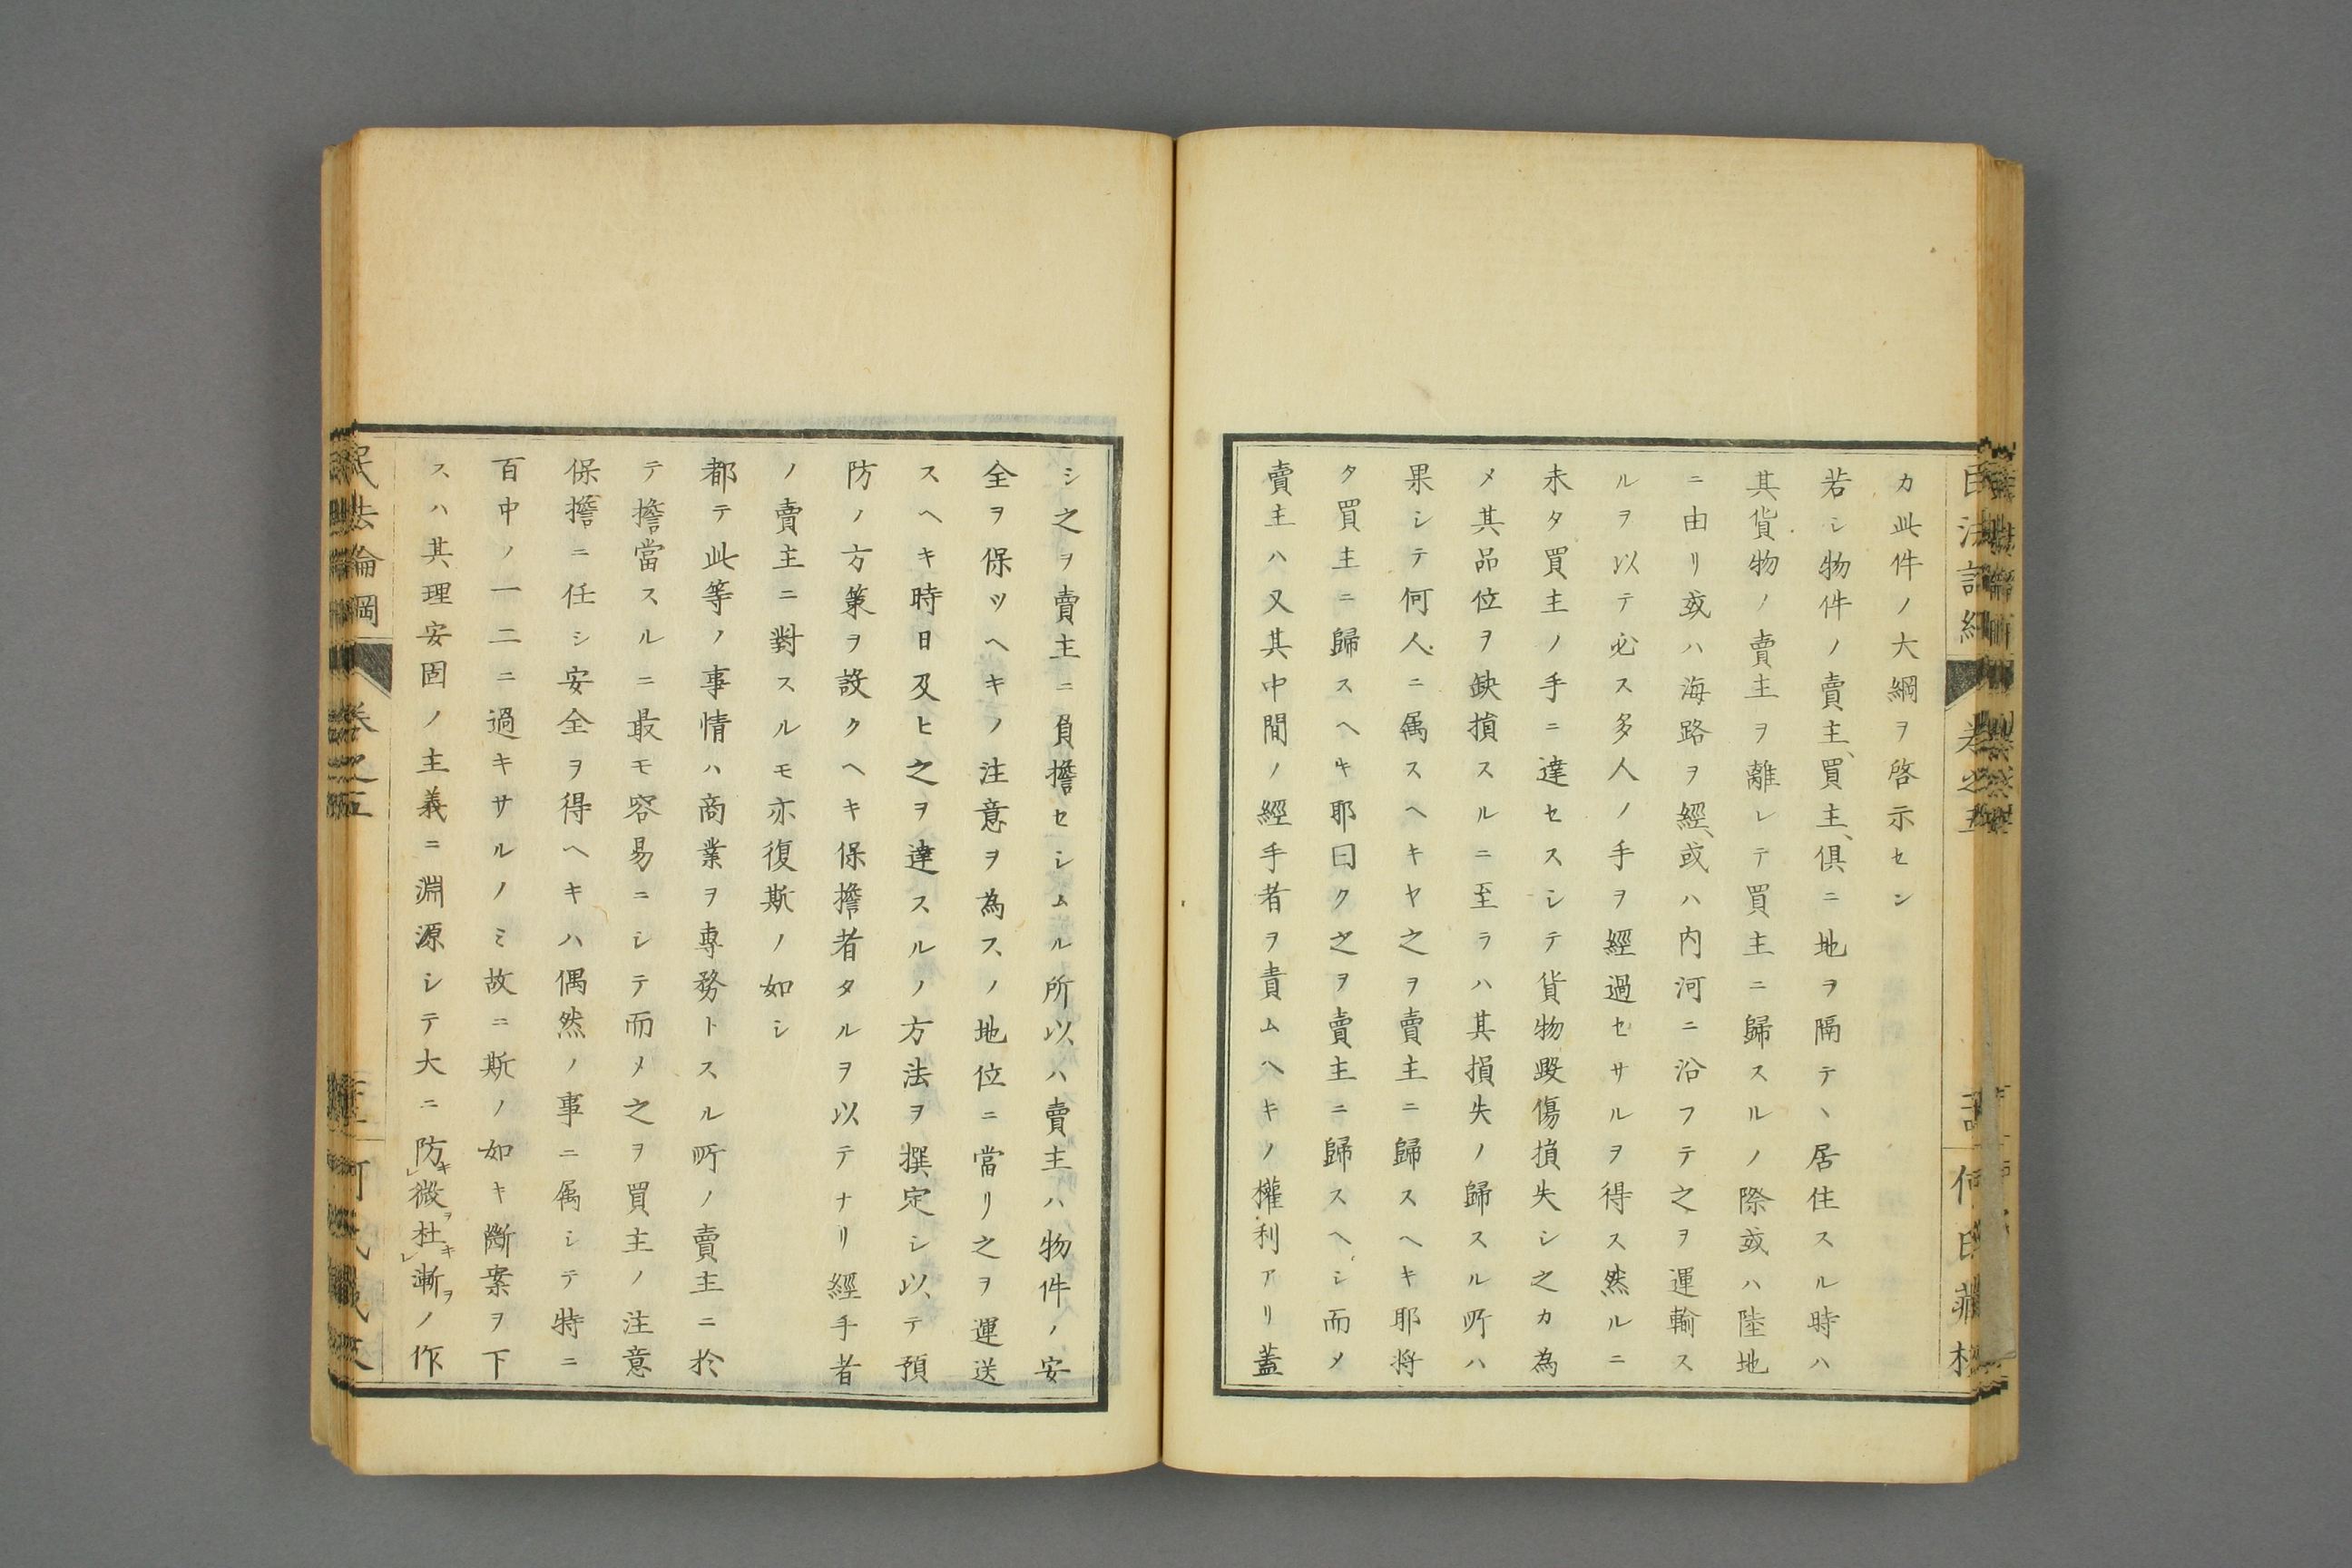 カ此件ノ大綱ヲ啓示セン
若シ物件ノ賣主、買主、俱ニ地ヲ隔テヽ居住スル時ハ
其貨物ノ賣主ヲ離レテ買主ニ歸スルノ際或ハ陸地
ニ由リ或ハ海路ヲ經、或ハ内河ニ沿フテ之ヲ運輸ス
ルヲ以テ必ス多人ノ手ヲ經過セサルヲ得ス然ルニ
未タ買主ノ手ニ達セスシテ貨物毀傷損失シ之カ為
メ其品位ヲ缺損スルニ至ラハ其損失ノ歸スル所ハ
果シテ何人ニ属スヘキヤ之ヲ賣主ニ歸スヘキ耶将
タ買主ニ歸スヘキ耶曰ク之ヲ賣主ニ歸スヘシ而メ
賣主ハ又其中間ノ經手者ヲ責ムヘキノ權利アリ蓋
シ之ヲ賣主ニ負擔セシムル所以ハ賣主ハ物件ノ安
全ヲ保ツヘキノ注意ヲ為スノ地位ニ當リ之ヲ運送
スヘキ時日及ヒ之ヲ達スルノ方法ヲ撰定シ以テ預
防ノ方策ヲ設クヘキ保擔者タルヲ以テナリ經手者
ノ賣主ニ對スルモ亦復斯ノ如シ
都テ此等ノ事情ハ商業ヲ專務トスル所ノ賣主ニ於
テ擔當スルニ最モ容易ニシテ而メ之ヲ買主ノ注意
保擔ニ任シ安全ヲ得ヘキハ偶然ノ事ニ属シテ特ニ
百中ノ一二ニ過キサルノミ故ニ斯ノ如キ斷案ヲ下
スハ其理安固ノ主義ニ淵源シテ大ニ防キレ微ヲ杜キレ漸ヲノ作
民法論綱 卷之五